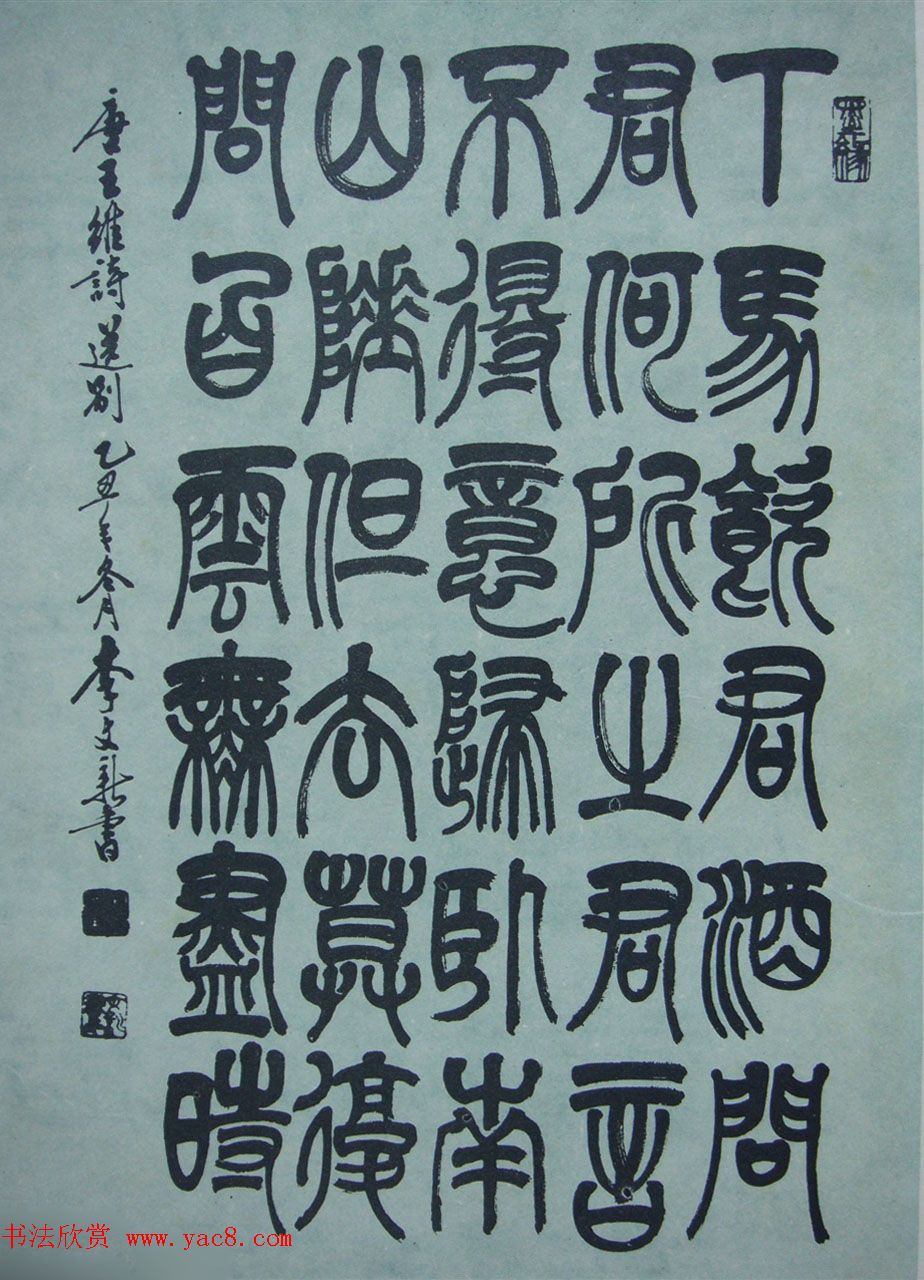 墨緣
下馬飲君酒問
君何所之君言
不得意歸臥南
山陲但去莫復
問白雲無盡時
唐王維詩送別 乙丑年冬月 李文新書
书法欣赏 www.yac8.com